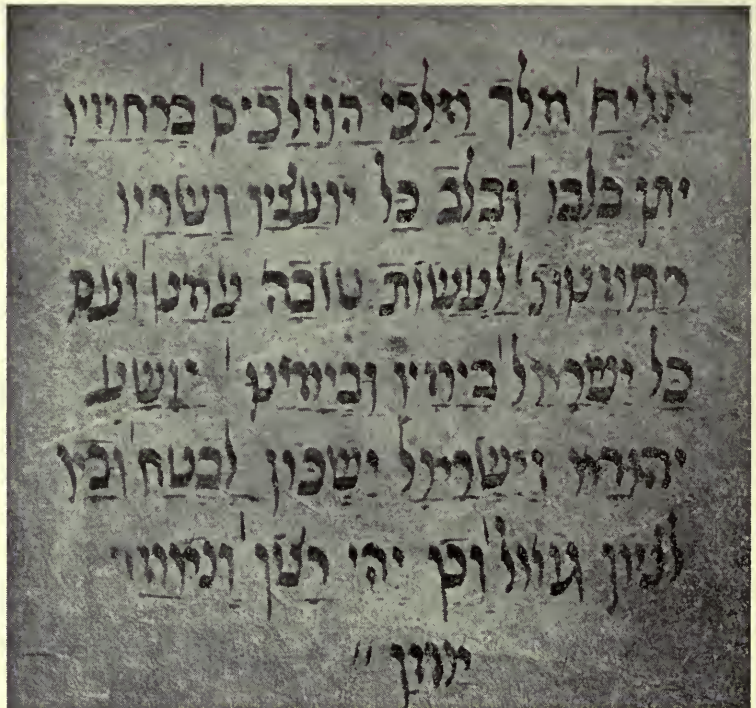 יצליח מלך מלכי המלכים ברחמיו
יתן בלבו ובלב כל יועציו ושריו
רחמנות לעשות טובה עמנו ועם
כל ישראל בימיו ובימינו תושע
יהודה וישראל ישכון לבטח ובא
לציון גואל וכן יהי רצון ונאמר
אמן